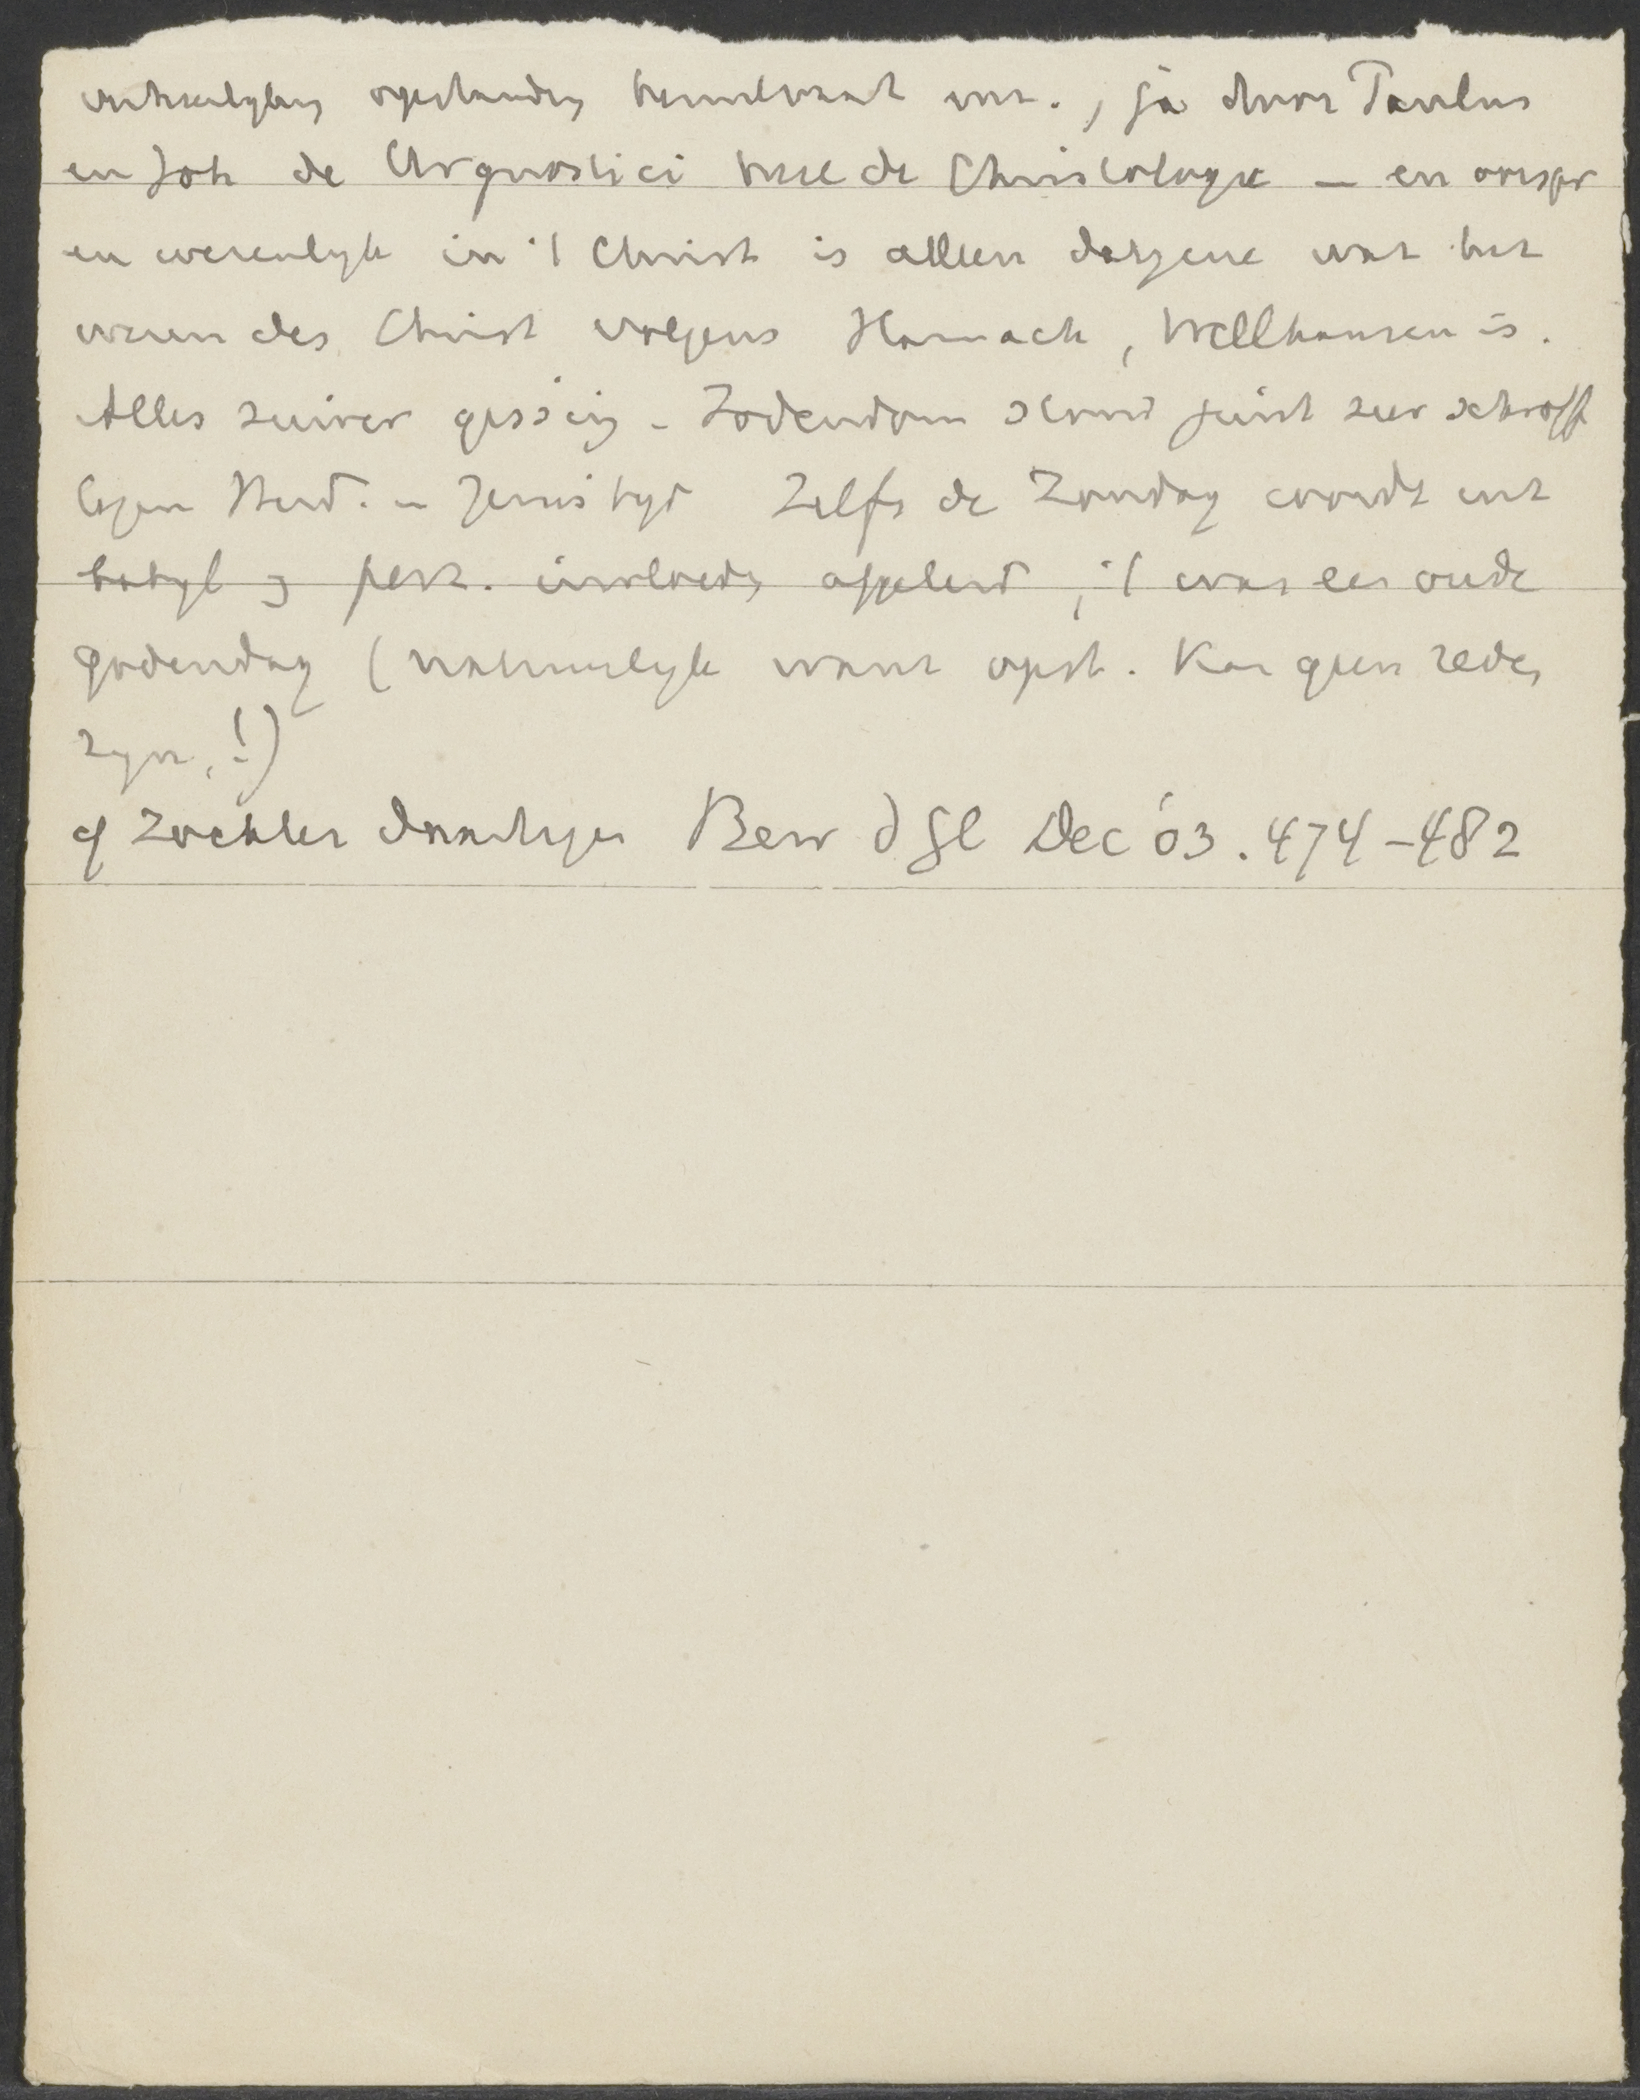 opstanding hemelvaart enz., ja door Paulus
en Joh de Urgnostici heel de Christologie — en oorspr
en wezenlyk in 't Christ is alleen datgene wat het
wezen des Christ volgens Harnack, Wellhausen is.
Alles zuiver gissing - Jodendom stond juist zeer schroff
tegen Heid. in Jezus tyd Zelfs de Zondag wordt uit
babyl en perz. invloeden afgeleid, 't was een oude
godendag (natuurlyk want opst. kan geen reden
zyn, !)
cf Zöckler daartegen Bew d Gl Dec '03. 474-482